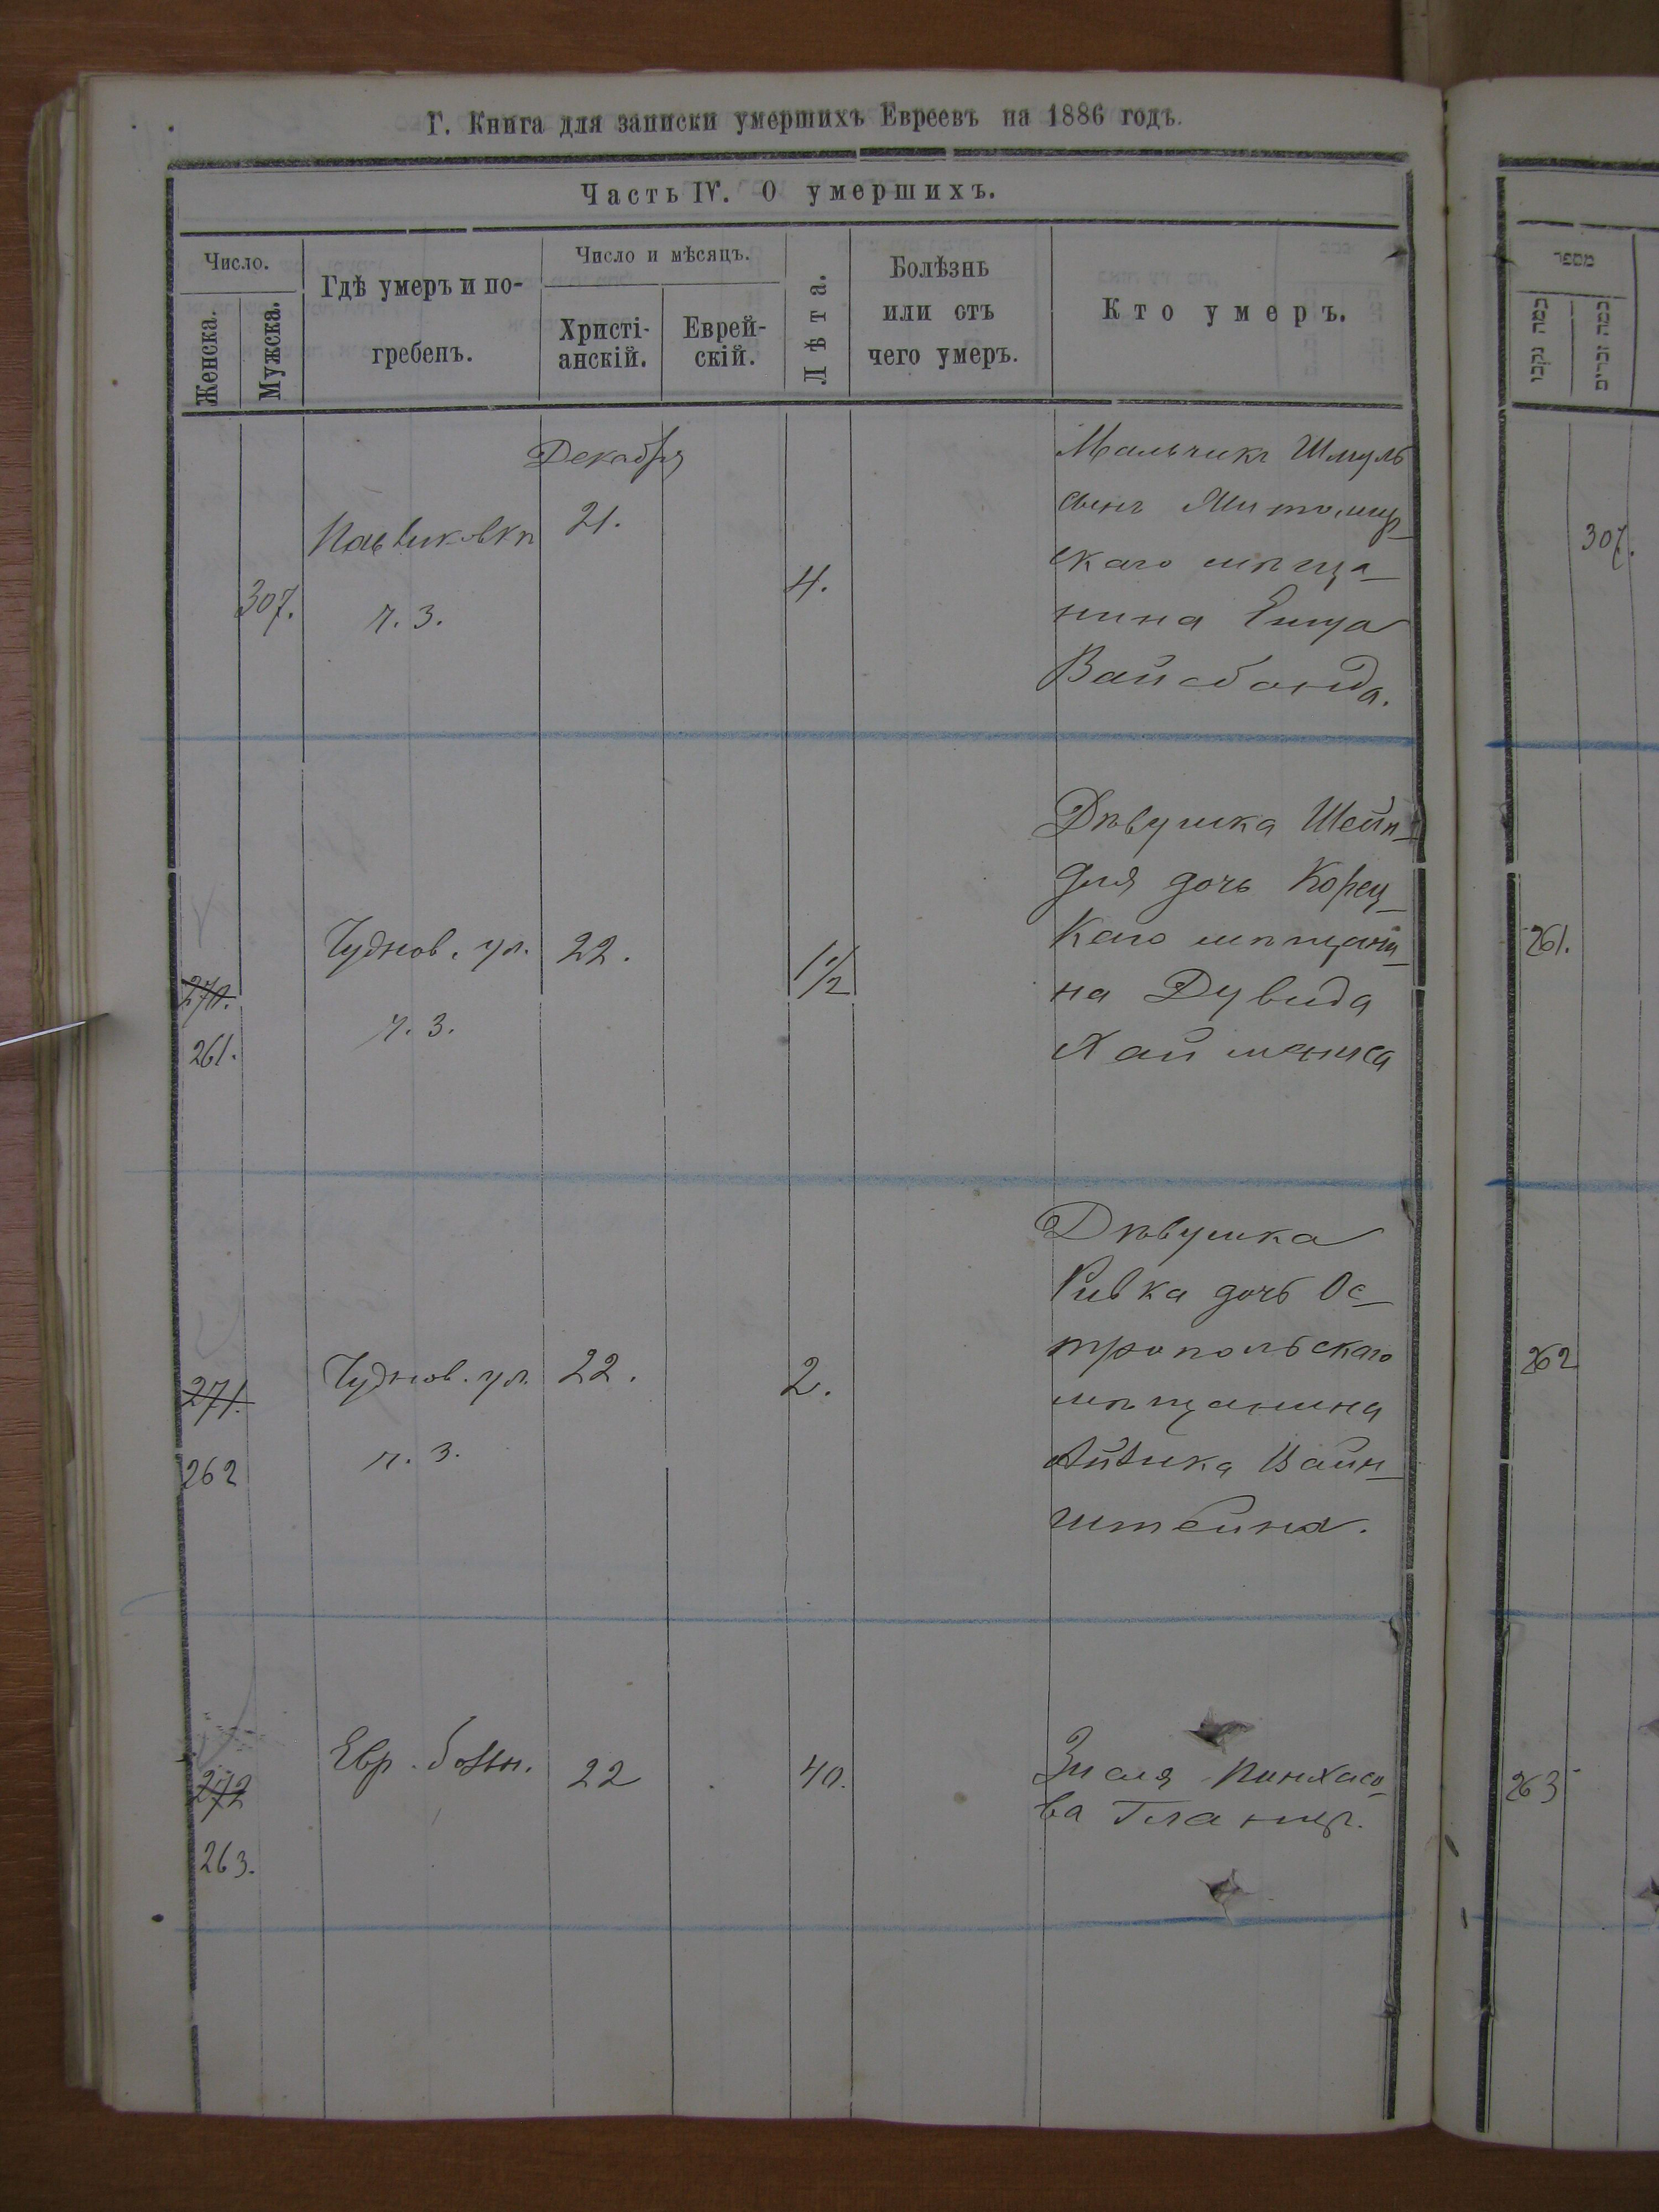 Г. Книга для записки умершихъ Евреевъ на 1886 годъ.
Часть IV. О умершихъ.
Число.
Женска.
Мужска.
Гдѣ умеръ и по-
гребенъ.
Число и мѣсяцъ.
Христі-
анскій.
Еврей-
скій.
Лѣта.
Болѣзнь
или отъ
чего умеръ.
Кто умеръ.
מספר
כמה נקבות
כמה זכרים
Декабря
307.
ч. 3.
21.
4.
Мальчикъ Шмуль
сынъ Житомир-
скаго мѣща-
нина
Вайсбанда.
307.
270.
261.
Чуднов. ул.
ч. 3.
22.
1 1/2
Дѣвушка Шейн-
для дочь Корец-
каго мѣщани-
на Дувида
261.
271.
262
Чуднов. ул.
ч. 3.
22.
2.
Дѣвушка
Ривка дочь Ос-
тропольскаго
мѣщанина
Айзика Вайн-
штейна.
262
272
263.
Евр. больн.
22
40.
Зисля Пинхасо-
ва
263